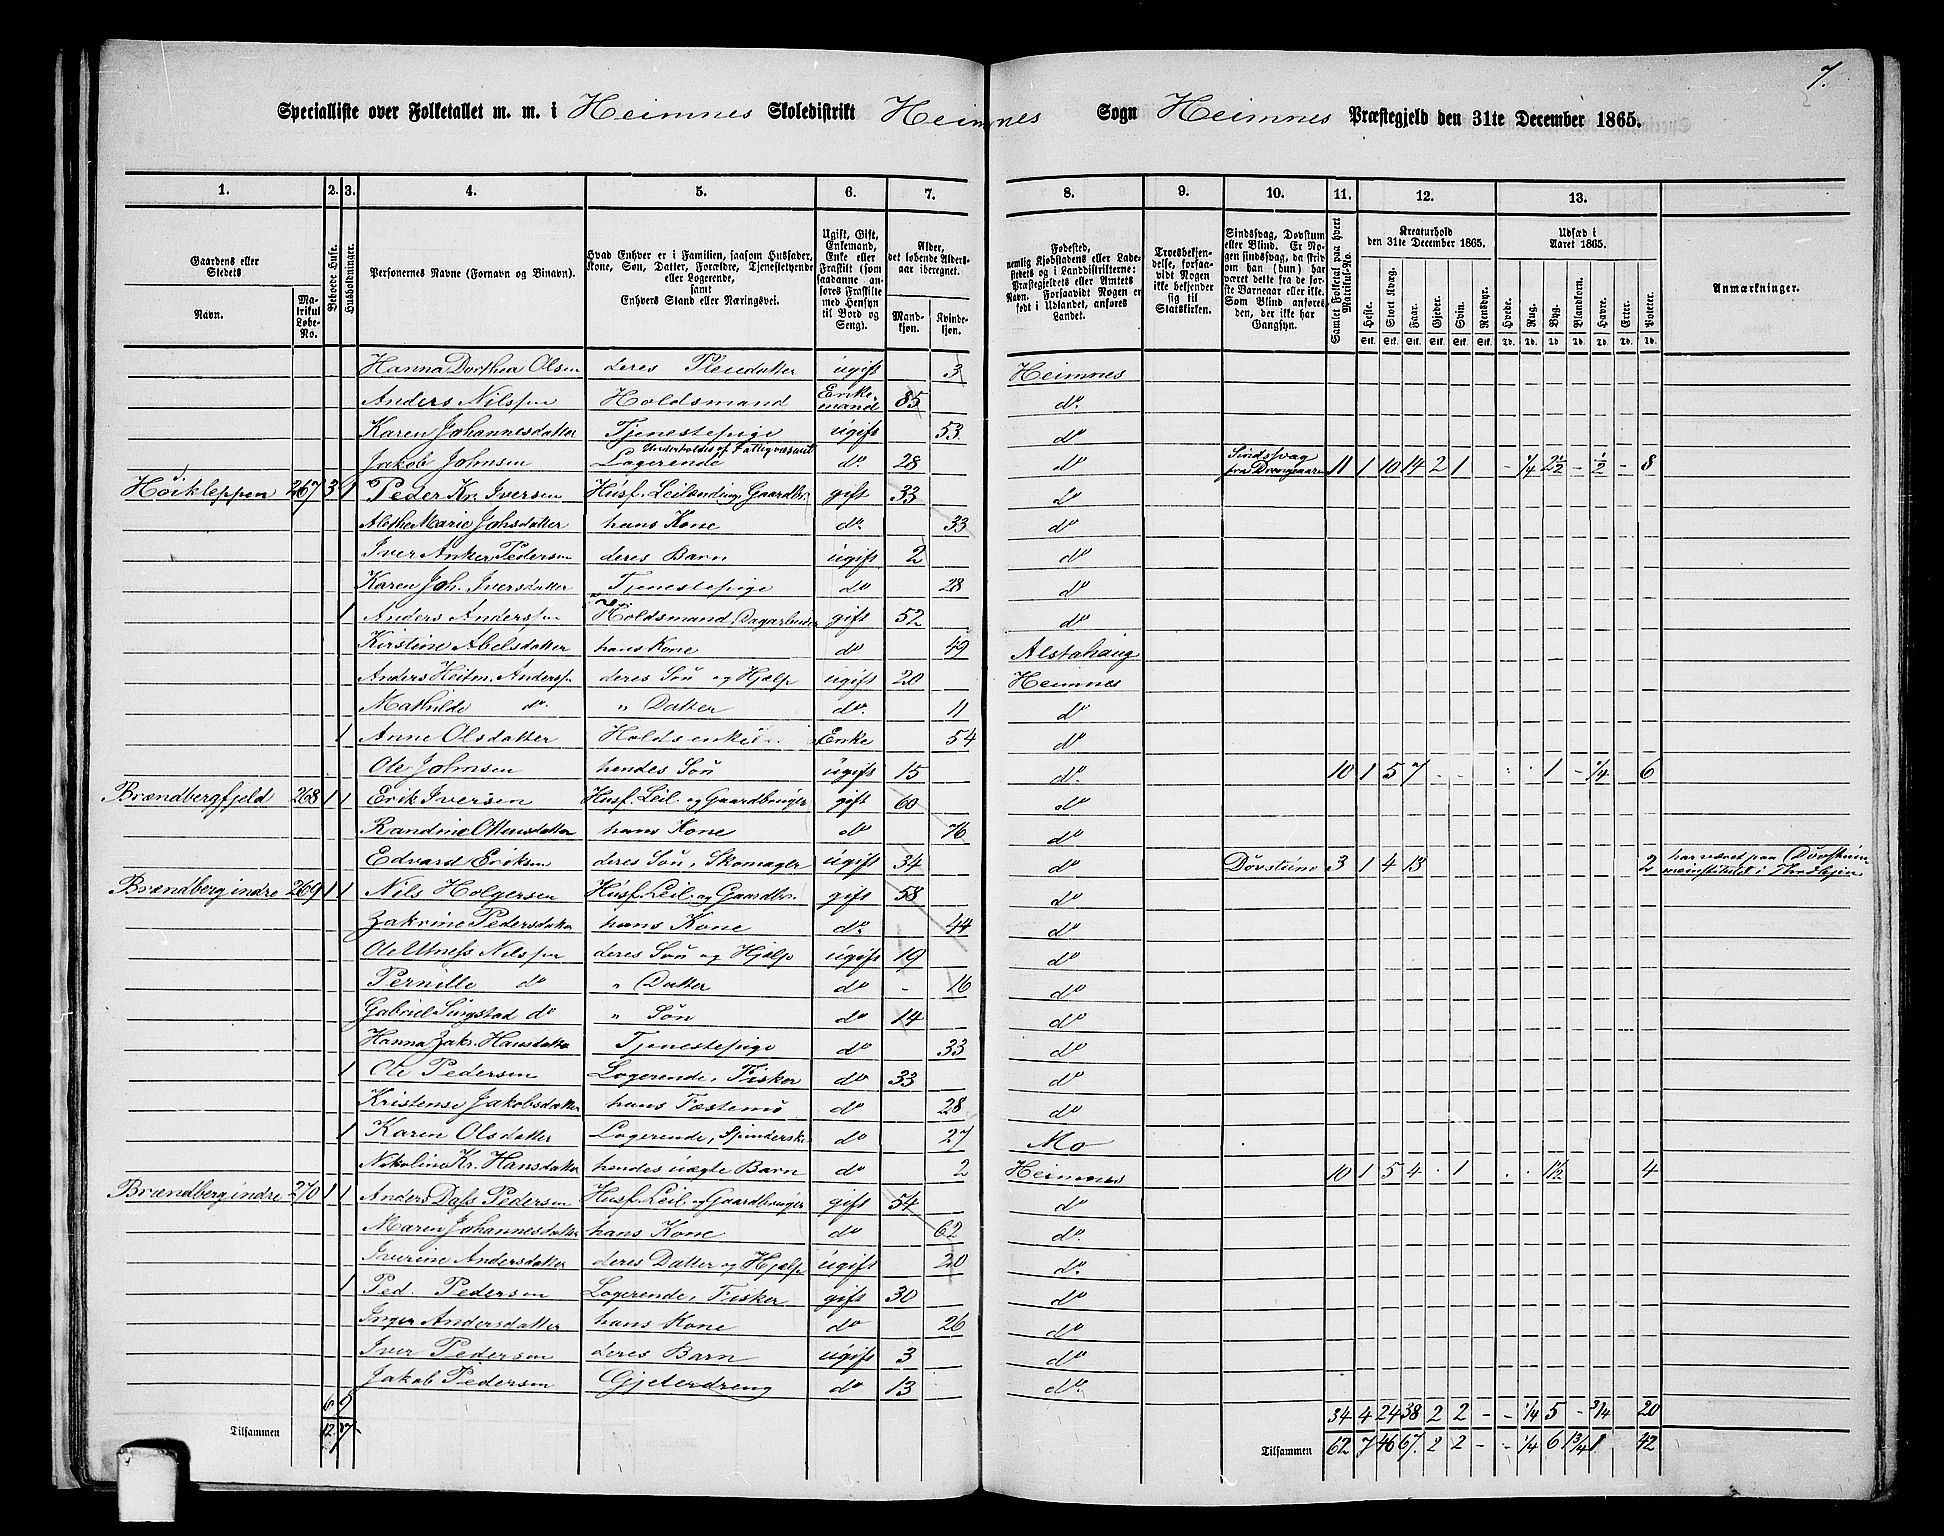 7.
Specialliste over Folketallet m. m. i Heimnes Skoledistrikt Heimnes Sogn Heimnes Præstegjeld den 31te December 1865.
1. 2. 3. 4. 5. 6. 7. 8. 9. 10. 11. 12. 13.
Gaardens eller Stedets
Navn.
Matrikul Løbe-No.
Beboede Huse.
Husholdninger.
Personernes Navne (Fornavn og Binavn).
Hvad Enhver er i Familien, saasom Husfader, Kone, Søn, Datter, Forældre, Tjenestetyende eller Logerende, samt Enhvers Stand eller Næringsvei.
Ugift, Gift, Enkemand, Enke eller Fraskilt (som saadanne anføres Fraskilte med Hensyn til Bord og Seng).
Alder, det løbende Aldersaar iberegnet.
Mandkjøn. Kvindekjøn.
Fødested, nemlig Kjøbstadens eller Ladestedets og i Landdistrikterne: Præstegjeldets eller Amtets Navn. Forsaavidt Nogen er født i Udlandet, anføres Landet.
Troesbekjendelse, forsaavidt Nogen ikke bekjender sig til Statskirken.
Sindssvag, Døvstum eller Blind. Er Nogen sindssvag, da skrives om han (hun) har været dette fra de første Barneaar eller ikke. Som Blind anføres den, der ikke har Gangsyn.
Samlet Folketal paa hvert Matrikul-No.
Kreaturhold den 31te December 1865.
Heste. Stort Kvæg. Faar. Gjeder. Svin. Rensdyr.
Stk. Stk. Stk. Stk. Stk. Stk.
Udsæd i Aaret 1865.
Hvede. Rug. Byg. Blandkorn. Havre. Erter. Poteter.
Td. Td. Td. Td. Td. Td. Td.
Anmærkninger.
Hanna Dorthea Olsen deres Pleiedatter ugift 3 Heimnes
Anders Nilssen Holdsmand Enkemand 85 do.
Karen Johannesdatter Tjenestepige ugift 53 do
Jakob Johnsen Logerende Underholdes af Fattigvæsenet do. 28 do Sindsvag fra 11 1 10 14 2 1 - 1/4 2 1/2 - 1/2 - 8
Høikleppen 267 3 1 Peder Kr. Iversen Husf. Leilænding Gaardbr. gift 33 do
Alethe Marie Johsdatter hans Kone do. 33 do
Iver Anker Pedersen deres Barn ugift 2 do
Karen Joh. Iversdatter Tjenestepige do 28 do
1 Anders Anderssen Holdsmand, Dagarbeider gift 52 do
Kirstine Abelsdatter hans Kone do 49 Alstahaug
Anders Heitm. Anderss deres Søn og Hjælp ugift 20 Heimnes
Mathilde do. " Datter do. 11 do
1 Anne Olsdatter Enke 54 do
Ole Johnsen hendes Søn ugift 15 do. 10 1 5 7 - - - - 1 - 1/4 6
Brændbergfjeld 268 1 1 Erik Iversen Husf. Leil og Gaardbruger gift 60 do
Randine Ottensdatter hans Kone do 76 do
Edvard Eriksen deres Søn, Skomager ugift 34 do Døvstum 3 1 4 13 2 har været paa Døvstummeinstitutet i
Brændberg indre 269 1 1 Nils Holgersen Husf. Leil og Gaardbr. gift 58 do
Zakrine Pedersdatter hans Kone do. 44 do
Ole Nilssen deres Søn og Hjælp ugift 19 do
Pernille do " Datter do - 16 do
Gabriel do " Søn do 14 do
Hanna Zakr. Hansdatter Tjenestepige do 33 do
1 Ole Pedersen Logerende, Fisker do 33 do
Kristense Jakobsdatter hans Fæstemø do 28 do
1 Karen Olsdatter Logerende, Spinderske do 27 Mo
Nikoline Kr. Hansdatter hendes uægte Barn do 2 Heimnes 10 1 5 4 - 1 - - 1 1/2 4
Brændberg indre 270 1 1 Anders Dass Pedersen Husf. Leil. og Gaardbruger gift 54 do
Maren Johannesdatter hans Kone do 62 do.
Iverine Andersdatter deres Datter og Hjælp ugift 20 do.
1 Ped. Pedersen Logerende, Fisker gift 30 do
Inger Andersdatter hans Kone do 26 do
Iver Pedersen deres Barn ugift 3 do
Jakob Pedersen Gjeterdreng do 13 do.
6 9 34 4 24 38 2 2 - - 1/4 5 - 3/4 20
Tilsammen 12 17 Tilsammen 62 7 46 67. 2 2 - - 1/4 6 1 3/4 1 42